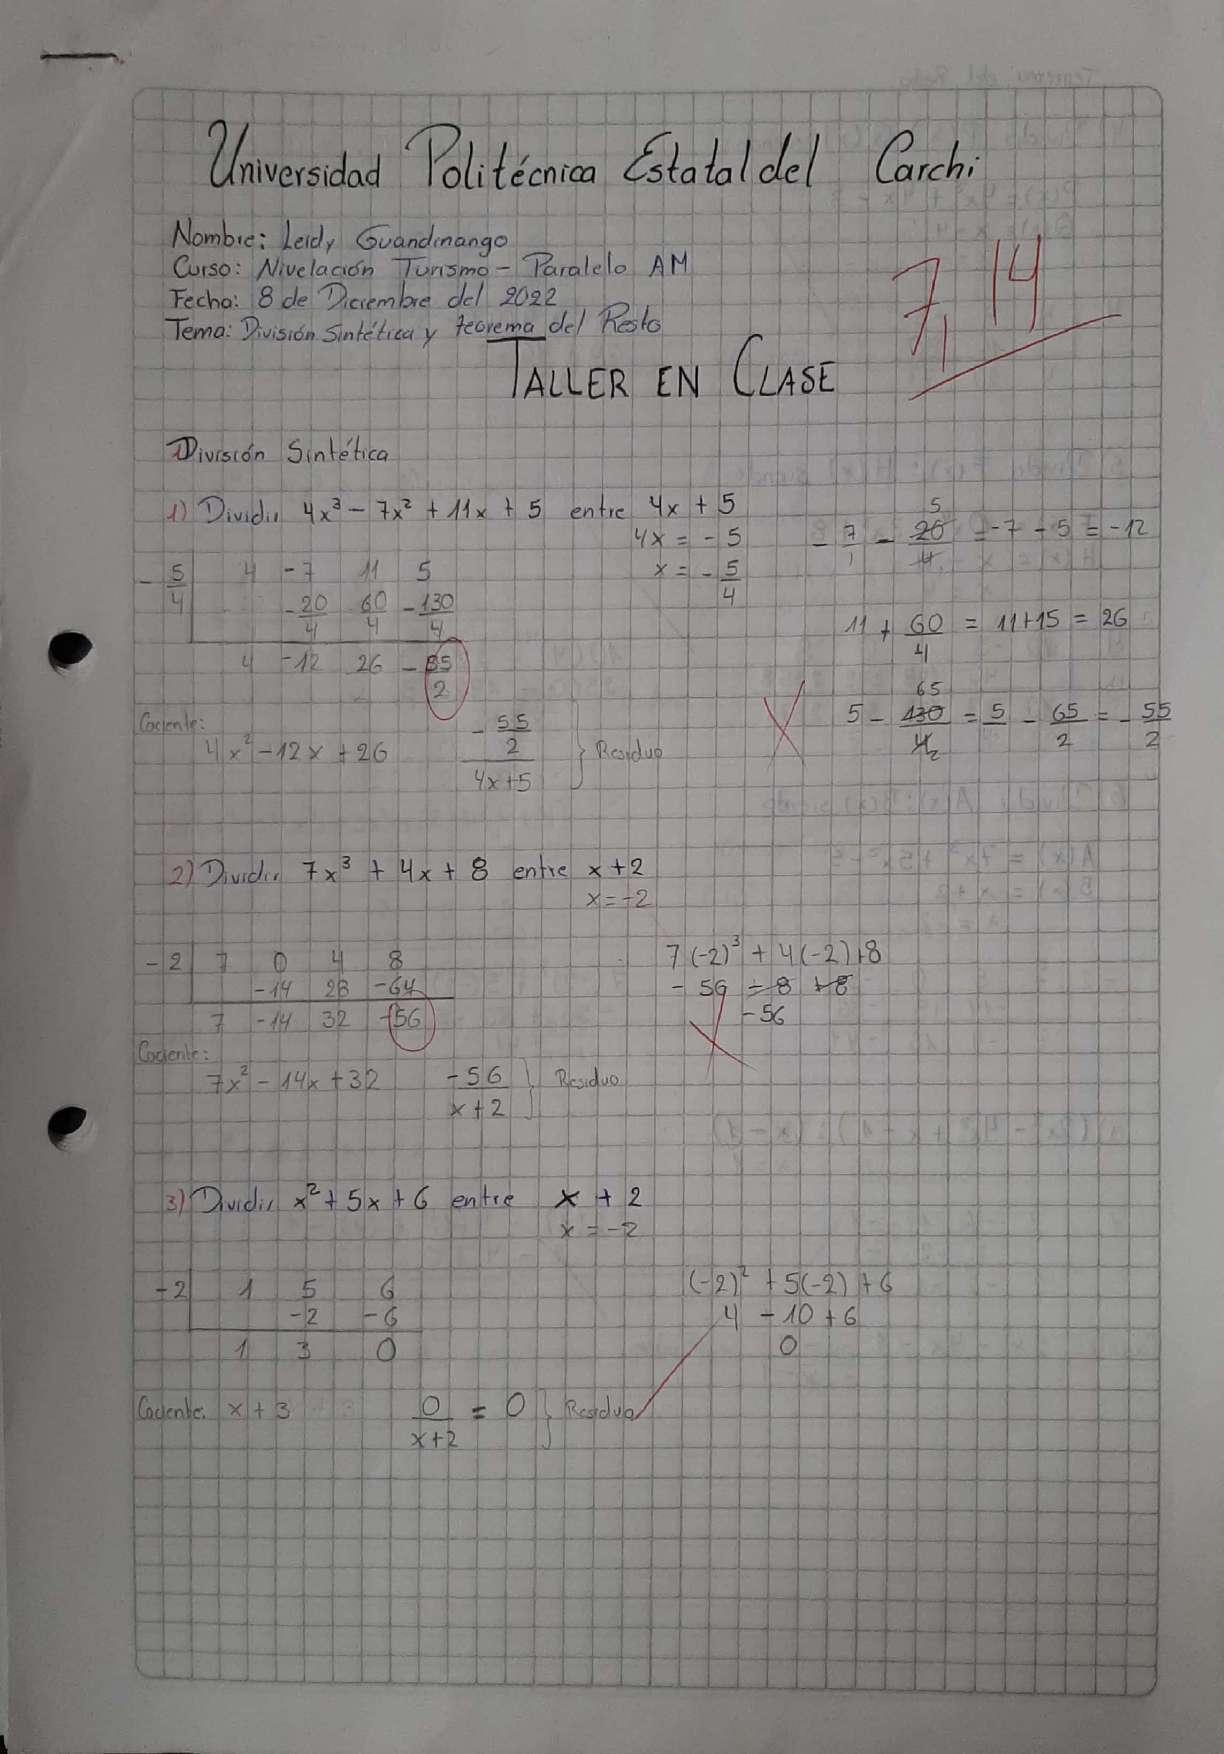 Universidad Politécnica Estatal del Carchi
Nombre: Leidy Guandinango
Curso: Nivelación Turismo - Paralelo AM
Fecha: 8 de Diciembre del 2022
Tema: División Sintética y teorema del Resto
7,14
TALLER EN CLASE
División Sintética
1) Dividir 4x³ - 7x² + 11x + 5 entre 4x + 5
4x = - 5
x = - 5/4
- 5/4 | 4 -7 11 5
-20/4 60/4 -130/4
4 -12 26 -55/2
- 7/1 - 20/4 = -7 - 5 = -12
5
11 + 60/4 = 11+15 = 26
65
5 - 130/4 2 = 5 - 65/2 = - 55/2
Cociente:
4x² - 12x + 26
- 55/2
4x+5
} Residuo
2) Dividir 7x³ + 4x + 8 entre x+2
x = -2
-2 | 7 0 4 8
-14 28 -64
7 -14 32 -56
7(-2)³ + 4(-2)+8
- 56 - 8 + 8
-56
Cociente:
7x² - 14x + 32
-56
x+2
} Residuo
3) Dividir x² + 5x + 6 entre x + 2
x = -2
-2 | 1 5 6
-2 -6
1 3 0
(-2)² + 5(-2) + 6
4 - 10 + 6
0
Cociente: x + 3
0/x+2 = 0 } Residuo